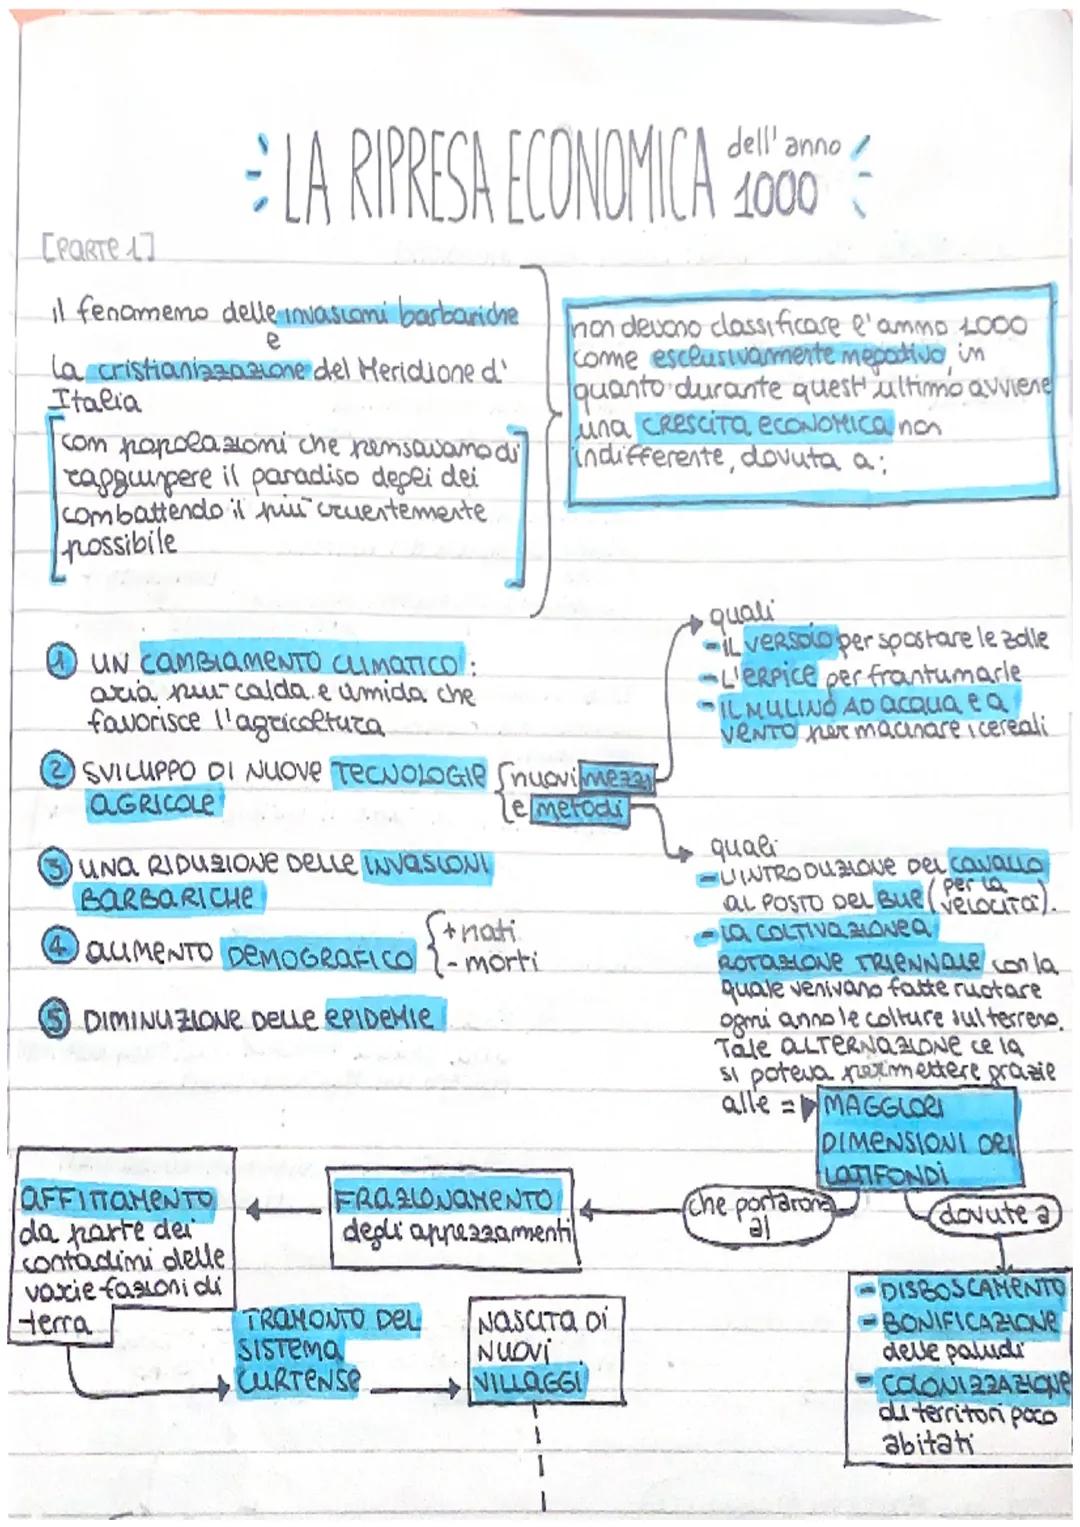 LA RIPRESA ECONOMICA dell'anno 1000
[PARTE 1]
il fenomeno delle invasioni barbariche
e
la cristianizzazione del Meridione d'
Italia
con popolazioni che pensavano di
raggiungere il paradiso degli dei
combattendo il più cruentemente
possibile
non devono classificare l'anno 1000
come esclusivamente negativo, in
quanto durante quest'ultimo avviene
una CRESCITA ECONOMICA non
indifferente, dovuta a:
1 UN CAMBIAMENTO CLIMATICO:
aria più calda e umida che
favorisce l'agricoltura
2 SVILUPPO DI NUOVE TECNOLOGIE
AGRICOLE
nuovi mezzi
e metodi
quali
- IL VERSOIO per spostare le zolle
- L'ERPICE per frantumarle
- IL MULINO AD ACQUA E A
VENTO per macinare i cereali
quali
- L'INTRODUZIONE DEL CAVALLO
AL POSTO DEL BUE (per la
VELOCITÀ).
- LA COLTIVAZIONE A
ROTAZIONE TRIENNALE con la
quale venivano fatte ruotare
ogni anno le colture sul terreno.
Tale ALTERNAZIONE ce la
si poteva permettere grazie
alle => MAGGIORI
DIMENSIONI DEI
LATIFONDI
3 UNA RIDUZIONE DELLE INVASIONI
BARBARICHE
4 AUMENTO DEMOGRAFICO
+ nati
- morti
5 DIMINUZIONE DELLE EPIDEMIE
che portarono
al
dovute a
- DISBOSCAMENTO
- BONIFICAZIONE
delle paludi
- COLONIZZAZIONE
di territori poco
abitati
FRAZIONAMENTO
degli appezzamenti
AFFITTAMENTO
da parte dei
contadini delle
varie fazioni di
terra
TRAMONTO DEL
SISTEMA
CURTENSE
NASCITA DI
NUOVI
VILLAGGI